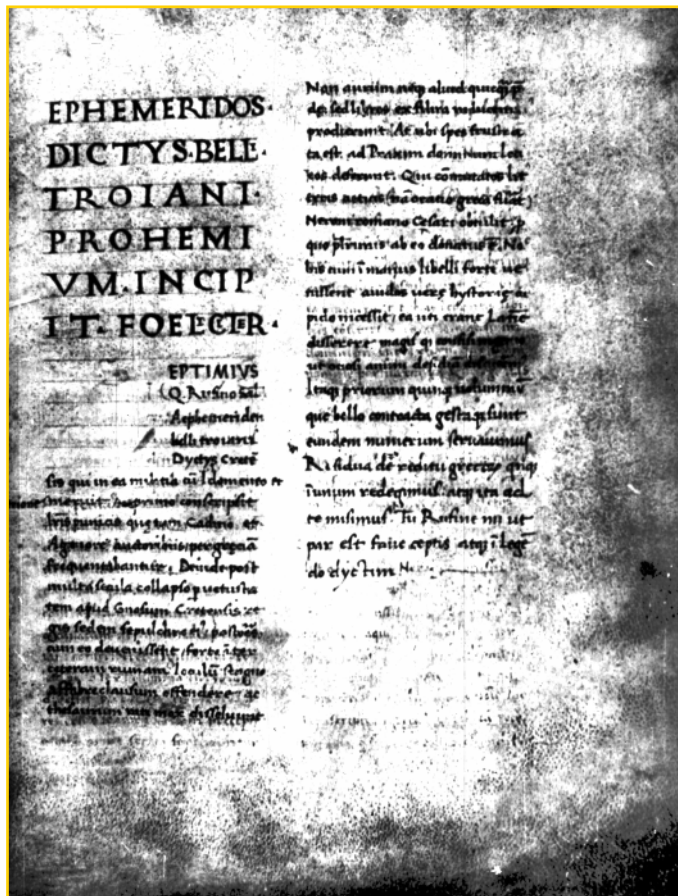 EPHEMERIDOS·
DICTYS·BELL·
TROIANI·
PROHEMI
VM·INCIP
IT· FOELICITER·
EPTIMIVS
Q. Rufino sal
Aephemeriden
belli troiani
Dyctys Creteñ
sis qui in ea militia cū Idomeneo et
meruit primo conscripsit
lr̄is punicis que tam Cadmo et
Agenore auctoribus per greciā
frequentabantur. Deinde post
multa secula collapso p uetusta
tem apud Gnosum Cretensis re
gie sedem sepulchro ei; pastores
cum eo deuenissent, forte īter
ceteram ruinam loculū stagno
affabre clausum offendere ac
thesaurum rati mox dissoluunt
Non aurum neqꝫ aliud quicqꝫ p̄
de, sed libros ex filiria
prodierunt. At ubi spes frustra
ta est, ad Praxim dominum loci
eos deferunt. Qui cōmutatos lit
teris acticis (nā oratio greca fuāt)
Neroni romano Cesari obtulit, p
quo plurimis ab eo donatus ē. No
bis cum ī manus libelli forte ue
nissent auidos uere hystorie cu
pido incessit, ea uti erant latine
disserere magis
ut ociosi animi desidiā
Itaqꝫ priorum quinqꝫ uoluminū
que bello contracta gestaqꝫ sunt
eundem numerum seruauimus
Residua de reditu grecorꝫ quiqꝫ
ī unum redegimus, atqꝫ ita ad
te misimus. Tu Rufine mi ut
par est faue ceptis atqꝫ ī lege
do dyctim